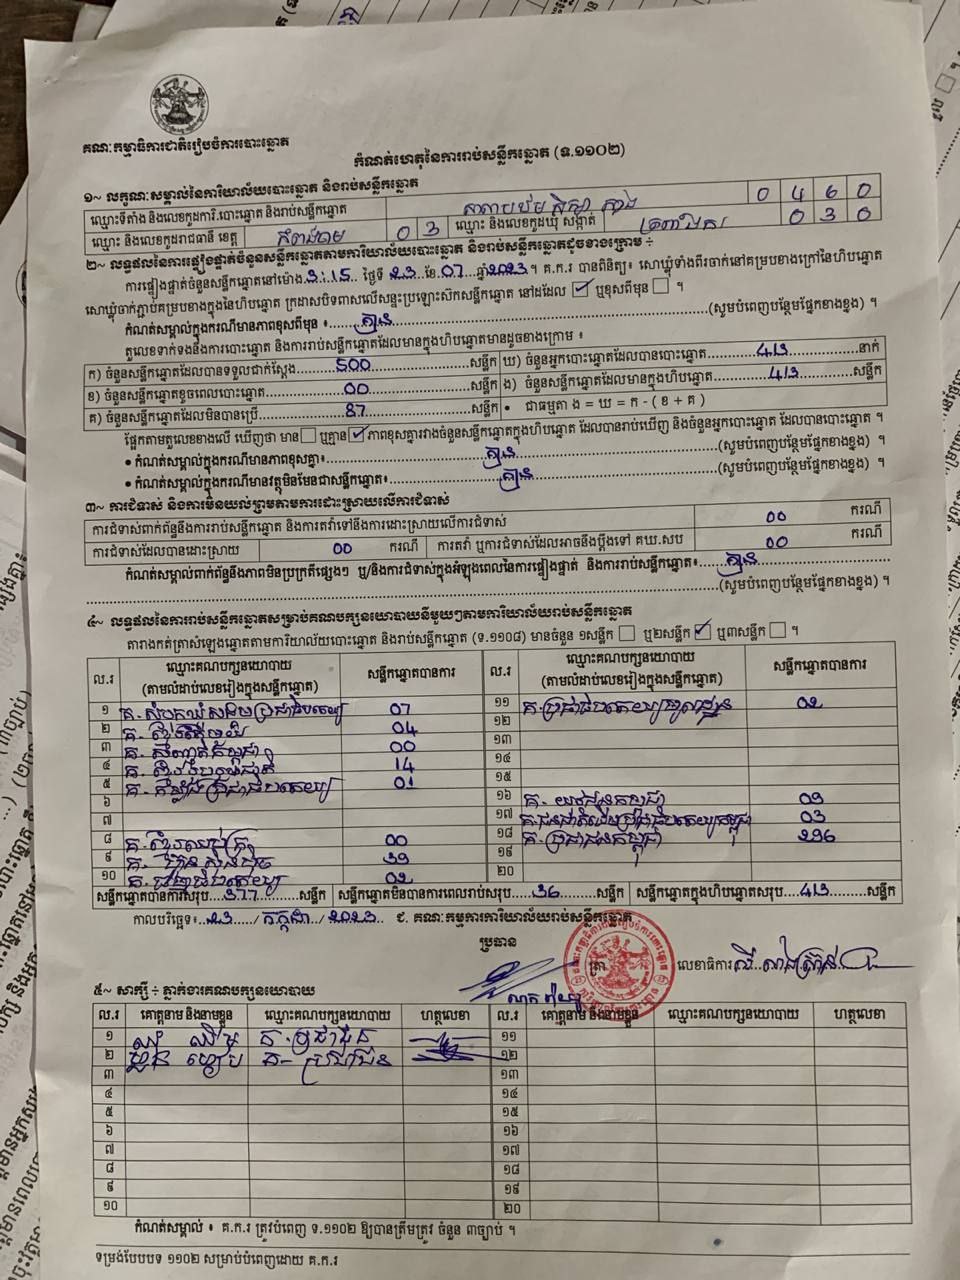 គណៈកម្មាធិការជាតិរៀបចំការបោះឆ្នោត
កំណត់ហេតុនៃការរាប់សន្លឹកឆ្នោត (ទ.១១០២)
១~ លក្ខណៈសម្គាល់នៃការិយាល័យបោះឆ្នោត និងរាប់សន្លឹកឆ្នោត
ឈ្មោះទីតាំង និងលេខកូដការិ.បោះឆ្នោត និងរាប់សន្លឹកឆ្នោត 0 4 6 0
ឈ្មោះ និងលេខកូដរាជធានី ខេត្ត កំពង់ចាម 0 3 ឈ្មោះ និងលេខកូដឃុំ សង្កាត់ 0 3 0
២~ លទ្ធផលនៃការផ្ទៀងផ្ទាត់ចំនួនសន្លឹកឆ្នោតតាមការិយាល័យបោះឆ្នោត និងរាប់សន្លឹកឆ្នោតដូចខាងក្រោម ÷
ការផ្ទៀងផ្ទាត់ចំនួនសន្លឹកឆ្នោតនៅម៉ោង 3:15 ថ្ងៃទី 23 ខែ 07 ឆ្នាំ 2023 ។ គ.ក.រ បានពិនិត្យ៖ សោឃ្មុំទាំងពីរចាក់នៅគម្របខាងក្រៅនៃហិបឆ្នោត
សោឃ្មុំចាក់ភ្ជាប់គម្របខាងក្នុងនៃហិបឆ្នោត ក្រដាសបិទពាសលើសន្ទះប្រឡោះស៊កសន្លឹកឆ្នោត នៅដដែល ☑ ឬខុសពីមុន ☐ ។
កំណត់សម្គាល់ក្នុងករណីមានភាពខុសពីមុន ៖ គ្មាន (សូមបំពេញបន្ថែមផ្នែកខាងខ្នង) ។
តួលេខទាក់ទងនឹងការបោះឆ្នោត និងការរាប់សន្លឹកឆ្នោតដែលមានក្នុងហិបឆ្នោតមានដូចខាងក្រោម ៖
ក) ចំនួនសន្លឹកឆ្នោតដែលបានទទួលជាក់ស្តែង 500 សន្លឹក ឃ) ចំនួនអ្នកបោះឆ្នោតដែលបានបោះឆ្នោត 413 នាក់
ខ) ចំនួនសន្លឹកឆ្នោតខូចពេលបោះឆ្នោត 00 សន្លឹក ង) ចំនួនសន្លឹកឆ្នោតដែលមានក្នុងហិបឆ្នោត 413 សន្លឹក
គ) ចំនួនសន្លឹកឆ្នោតដែលមិនបានប្រើ 87 សន្លឹក • ជាធម្មតា ង = ឃ = ក - ( ខ + គ )
ផ្អែកតាមតួលេខខាងលើ ឃើញថា មាន ☐ ឬគ្មាន ☑ ភាពខុសគ្នារវាងចំនួនសន្លឹកឆ្នោតក្នុងហិបឆ្នោត ដែលបានរាប់ឃើញ និងចំនួនអ្នកបោះឆ្នោត ដែលបានបោះឆ្នោត ។
• កំណត់សម្គាល់ក្នុងករណីមានភាពខុសគ្នា៖ គ្មាន (សូមបំពេញបន្ថែមផ្នែកខាងខ្នង) ។
• កំណត់សម្គាល់ក្នុងករណីមានវត្ថុមិនមែនជាសន្លឹកឆ្នោត៖ គ្មាន (សូមបំពេញបន្ថែមផ្នែកខាងខ្នង) ។
៣~ ការជំទាស់ និងការមិនយល់ព្រមតាមការដោះស្រាយលើការជំទាស់
ការជំទាស់ពាក់ព័ន្ធនឹងការរាប់សន្លឹកឆ្នោត និងការតវ៉ាទៅនឹងការដោះស្រាយលើការជំទាស់ 00 ករណី
ការជំទាស់ដែលបានដោះស្រាយ 00 ករណី ការតវ៉ា ឬការជំទាស់ដែលអាចនឹងប្តឹងទៅ គឃ.សប 00 ករណី
កំណត់សម្គាល់ពាក់ព័ន្ធនឹងភាពមិនប្រក្រតីផ្សេងៗ ឬ/និងការជំទាស់ក្នុងអំឡុងពេលនៃការផ្ទៀងផ្ទាត់ និងការរាប់សន្លឹកឆ្នោត៖ គ្មាន
(សូមបំពេញបន្ថែមផ្នែកខាងខ្នង) ។
៤~ លទ្ធផលនៃការរាប់សន្លឹកឆ្នោតសម្រាប់គណបក្សនយោបាយនីមួយៗតាមការិយាល័យរាប់សន្លឹកឆ្នោត
តារាងកត់ត្រាសំឡេងឆ្នោតតាមការិយាល័យបោះឆ្នោត និងរាប់សន្លឹកឆ្នោត (ទ.១១០៨) មានចំនួន ១សន្លឹក ☐ ឬ២សន្លឹក ☑ ឬ៣សន្លឹក ☐ ។
ល.រ ឈ្មោះគណបក្សនយោបាយ (តាមលំដាប់លេខរៀងក្នុងសន្លឹកឆ្នោត) សន្លឹកឆ្នោតបានការ ល.រ ឈ្មោះគណបក្សនយោបាយ (តាមលំដាប់លេខរៀងក្នុងសន្លឹកឆ្នោត) សន្លឹកឆ្នោតបានការ
១ គ. សំបុកឃ្មុំសង្គមប្រជាធិបតេយ្យ 07 ១១ គ. ប្រជាធិបតេយ្យមូលដ្ឋាន 02
២ គ. 04 ១២
៣ គ. 00 ១៣
៤ គ. 14 ១៤
៥ គ. កម្លាំងប្រជាធិបតេយ្យ 01 ១៥
៦ ១៦ គ. 09
៧ ១៧ គ. 03
៨ គ. 00 ១៨ គ. ប្រជាជនកម្ពុជា 296
៩ គ. 39 ១៩
១០ គ. 02 ២០
សន្លឹកឆ្នោតបានការសរុប 377 សន្លឹក សន្លឹកឆ្នោតមិនបានការពេលរាប់សរុប 36 សន្លឹក សន្លឹកឆ្នោតក្នុងហិបឆ្នោតសរុប 413 សន្លឹក
កាលបរិច្ឆេទ៖ 23 / កក្កដា / 2023 ជ. គណៈកម្មការការិយាល័យរាប់សន្លឹកឆ្នោត
ប្រធាន
ត្រា លេខាធិការ
៥~ សាក្សី ÷ ភ្នាក់ងារគណបក្សនយោបាយ
ល.រ គោត្តនាម និងនាមខ្លួន ឈ្មោះគណបក្សនយោបាយ ហត្ថលេខា ល.រ គោត្តនាម និងនាមខ្លួន ឈ្មោះគណបក្សនយោបាយ ហត្ថលេខា
១ គ. ប្រជាជន ១១
២ គ- ប្រជាជន ១២
៣ ១៣
៤ ១៤
៥ ១៥
៦ ១៦
៧ ១៧
៨ ១៨
៩ ១៩
១០ ២០
កំណត់សម្គាល់ ៖ គ.ក.រ ត្រូវបំពេញ ទ.១១០២ ឱ្យបានត្រឹមត្រូវ ចំនួន ៣ច្បាប់ ។
ទម្រង់បែបបទ ១១០២ សម្រាប់បំពេញដោយ គ.ក.រ